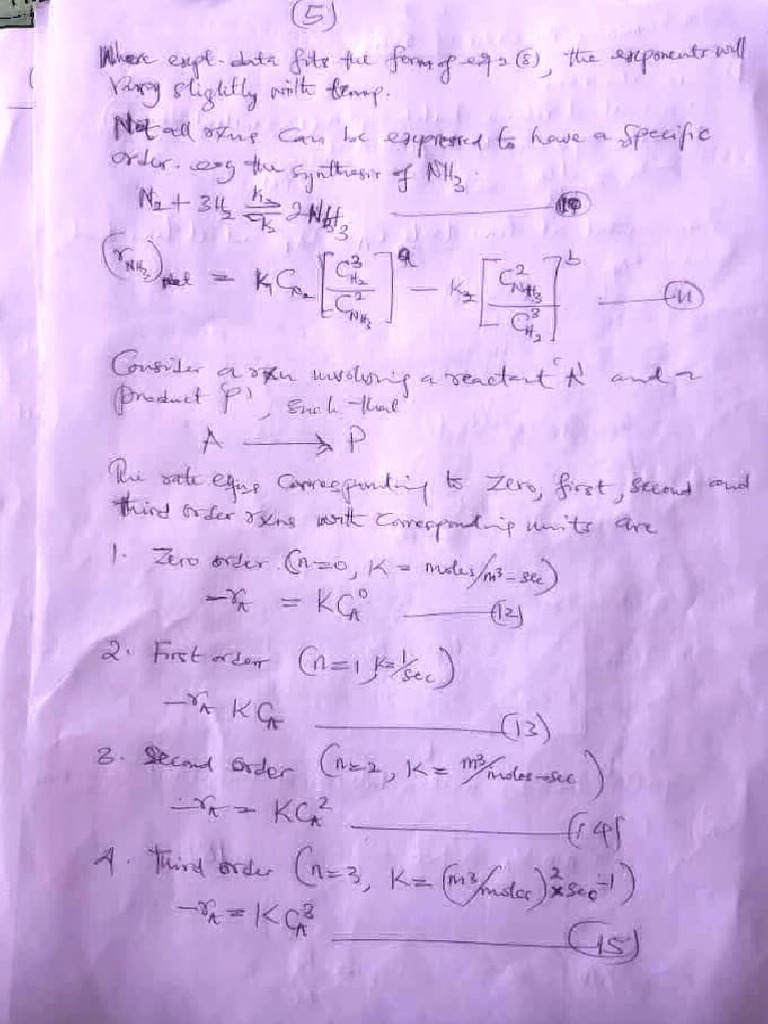 (5)
Where expt-data fits the form of eqn (8), the exponents will
vary slightly with temp.
Not all rxns can be expressed to have a specific
order. eg the synthesis of NH₃.
N₂ + 3H₂ ⇌ 2NH₃ (10)
(r_NH₃)net = K₁C_N₂ [C³_H₂ / C²_NH₃]^a − K₂ [C²_NH₃ / C³_H₂]^b (11)
Consider a rxn involving a reactant 'A' and a
product 'P', such that
A → P
The rate eqns corresponding to zero, first, second and
third order rxns with corresponding units are
1. Zero order (n=0, K = moles/m³-sec)
-r_A = KC_A⁰ (12)
2. First order (n=1 K=1/sec)
-r_A KC_A (13)
3. Second order (n=2, K = m³/moles-sec)
-r_A = KC_A² (14)
4. Third order (n=3, K = (m³/moles)² × sec⁻¹)
-r_A = KC_A³ (15)